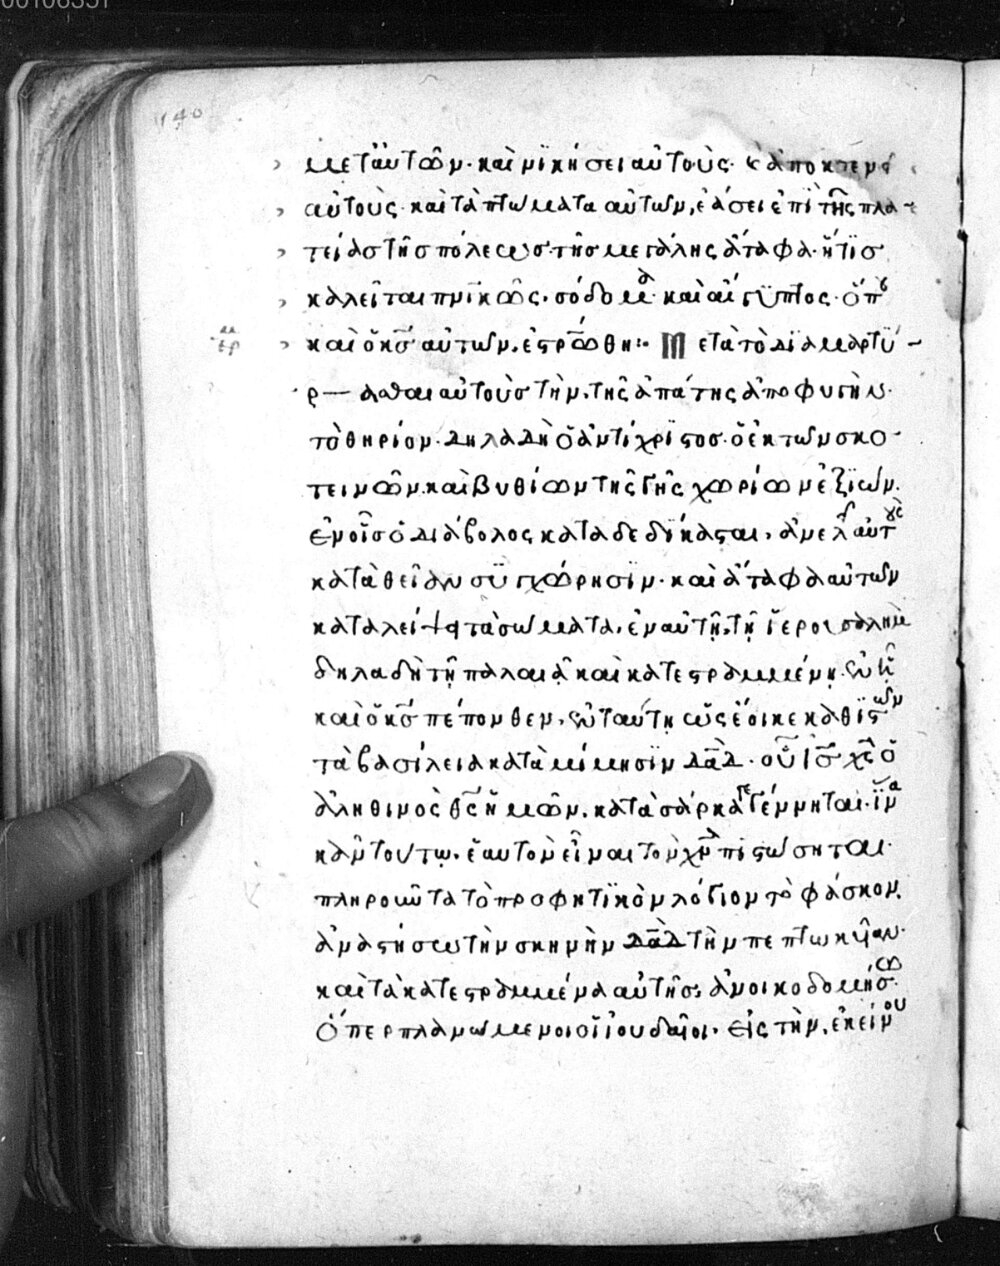 140
μετ αὐτῶν· καὶ νικήσει αὐτοὺς· ϗ ἀποκτενεῖ
αὐτοὺς· καὶ τὰ πτώματα αὐτῶν, ἐάσει ἐπὶ τῆς πλα-
τείας τῆς πόλεως τῆς μεγάλης ἄταφα· ἥτις
καλεῖται πνικῶς, σόδομα· καὶ αἴγυπτος· ὅπου
ερμ
καὶ ὁ κς αὐτῶν, ἐστρώθη:· Μετὰ τὸ διαμαρτύ-
ρασθαι αὐτοὺς τὴν, τῆς ἀπάτης ἀποφυγὴν·
τὸ θηρίον. δηλαδὴ ὁ ἀντίχριστος· ὁ ἐκ τῶν σκο-
τεινῶν. καὶ βυθίων τῆς γῆς χωρίων ἐξιών.
ἐν οἷς ὁ διάβολος καταδεδίκασται, ἀνελεῖ αὐτους
κατὰ θείαν συγχώρησιν· καὶ ἄταφα αὐτῶν
καταλείψει τὰ σώματα, ἐν αὐτῇ, τῇ ἱερουσαλὴμ
δηλαδὴ τῇ παλαιᾷ καὶ κατεστραμμένῃ. ἐν ᾗ
καὶ ὁ κς πέπονθεν, ἐν ταύτῃ ὡς ἔοικε καθιστῶν
τὰ βασίλεια κατὰ μίμησιν δαδ· οὗ ις χς ὁ
ἀληθινὸς θς ἡμῶν, κατὰ σάρκα γεγέννηται· ἵνα
κἂν τούτῳ, ἑαυτὸν εἶναι τὸν χν πιστώσηται·
πληρῶν τὰ τὸ προφητικὸν λόγιον τὸ φάσκον.
ἀναστήσω τὴν σκηνὴν δαδ τὴν πεπτωκυῖαν·
καὶ τὰ κατεστραμμένα αὐτῆς, ἀνοικοδομήσω·
ὅπερ πλανώμενοι οἱ ἰουδαῖοι, εἰς τὴν, ἐκείνου